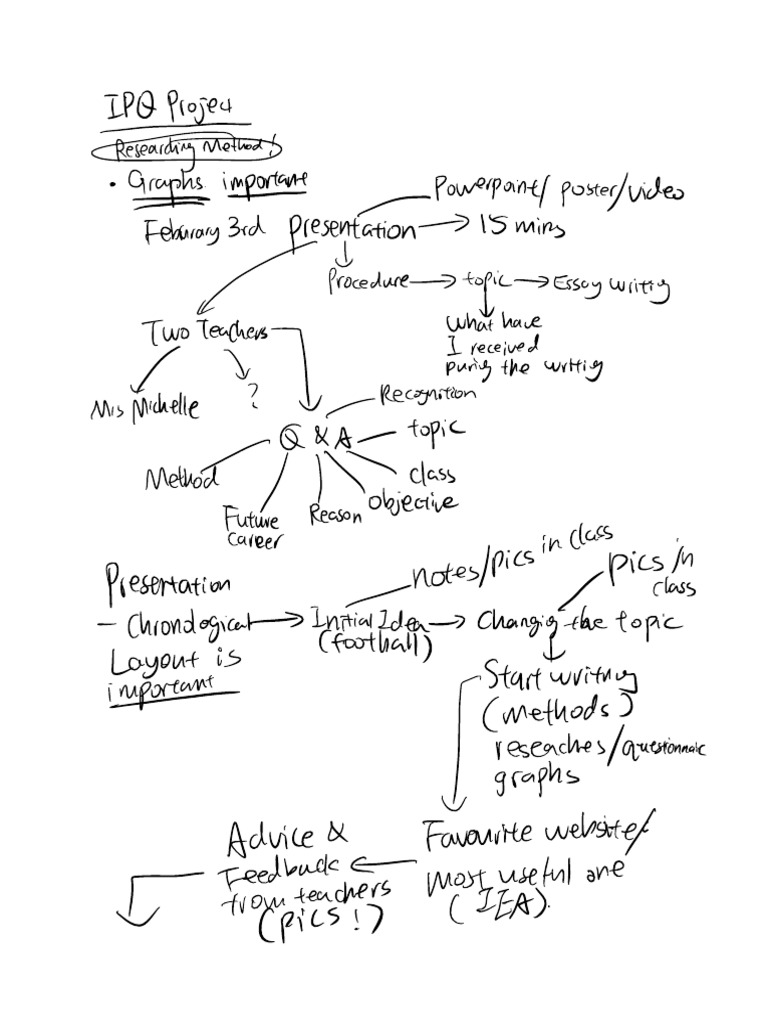 IPQ Project
Researching Method!
• Graphs important
Powerpoint/ poster/video
Feburary 3rd Presentation → 15 mins
Procedure → topic → Essay writing
What have
I received
During the writing
Two Teachers
Mis Michelle
?
Recognition
Q & A
topic
Method
class
Objective
Future
career
Reason
notes/pics in class
pics in
class
Presentation
- Chronological → Initial Idea → Changing the topic
(football)
Layout is
important
Start writing
(methods)
reseaches/questionnaic
graphs
Favourite website/
most useful one
(IEA).
Advice &
Feedback
from teachers
(pics!)